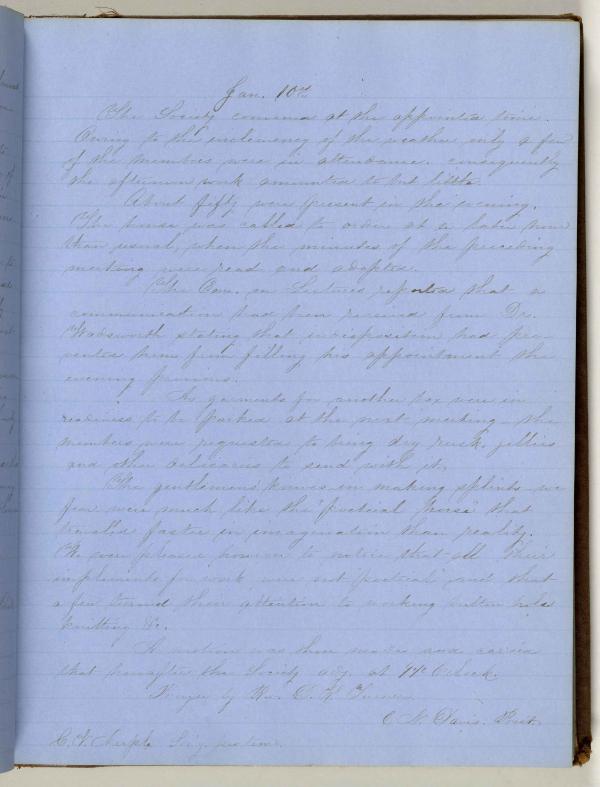 Jan. 10th
The Society convened at the appointed time.
Owing to the inclemency of the weather only a few
of the members were in attendance. consequently
the afternoon work amounted to but little.
About fifty were present in the evening.
The house was called to order at a later hour
than usual, when the minutes of the preceding
meeting were read and adopted.
The Com. on Lectures reported that a
communication had been received from Dr.
Wadsworth stating that indisposition had pre-
vented him from filling his appointment the
evening previous.
As garments for another box were in
readiness to be packed at the next meeting - the
members were requested to bring dry rusk, jellies
and other delicacies to send with it.
The gentlemens knives in making splints - we
fear were much like the "poetical horse" that
travelled faster in imagination than reality.
We were pleased however to notice that all their
implements for work were not "poetical" and that
a few turned their attention to working button holes
knitting &c.
A motion was then made and carried
that hereafter the Society adj. at O'clock.
Prayer by Rev. D. K. Turner
Davis. Prest.
Sec'y pro tem.